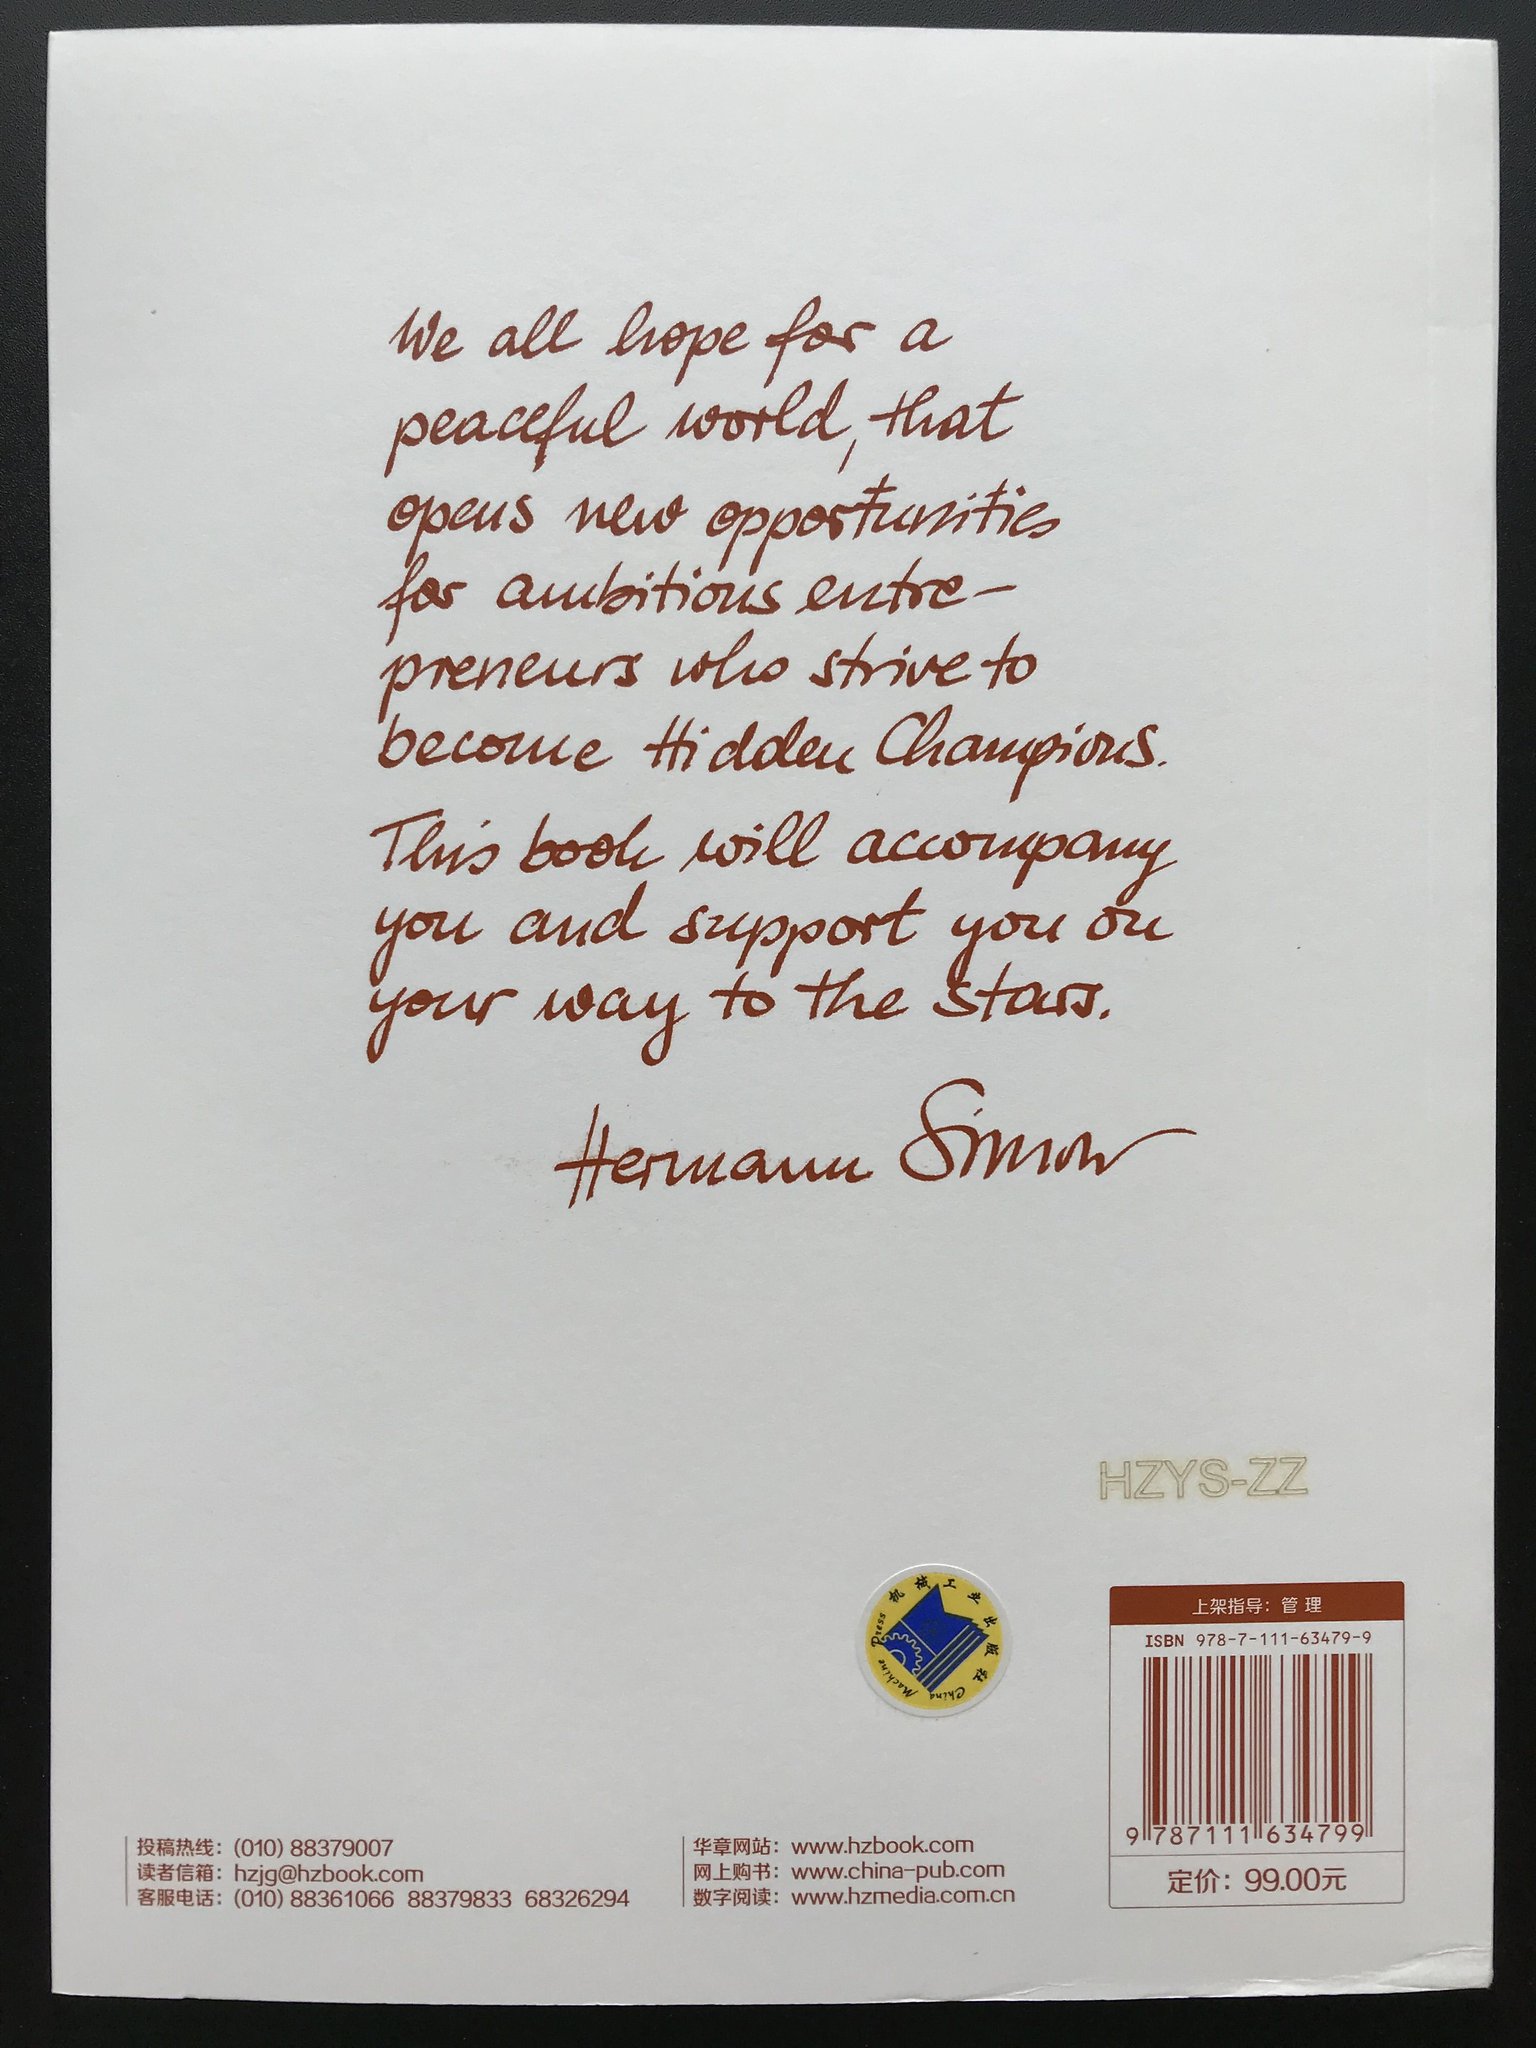 We all hope for a
peaceful world, that
opens new opportunities
for ambitious entre-
preneurs who strive to
become Hidden Champions.
This book will accompany
you and support you on
your way to the stars.
Hermann Simon
HZYS-ZZ
机械工业出版社
China Machine Press
上架指导：管 理
ISBN 978-7-111-63479-9
9 787111 634799
定价：99.00元
投稿热线：(010) 88379007
读者信箱：hzjg@hzbook.com
客服电话：(010) 88361066 88379833 68326294
华章网站：www.hzbook.com
网上购书：www.china-pub.com
数字阅读：www.hzmedia.com.cn